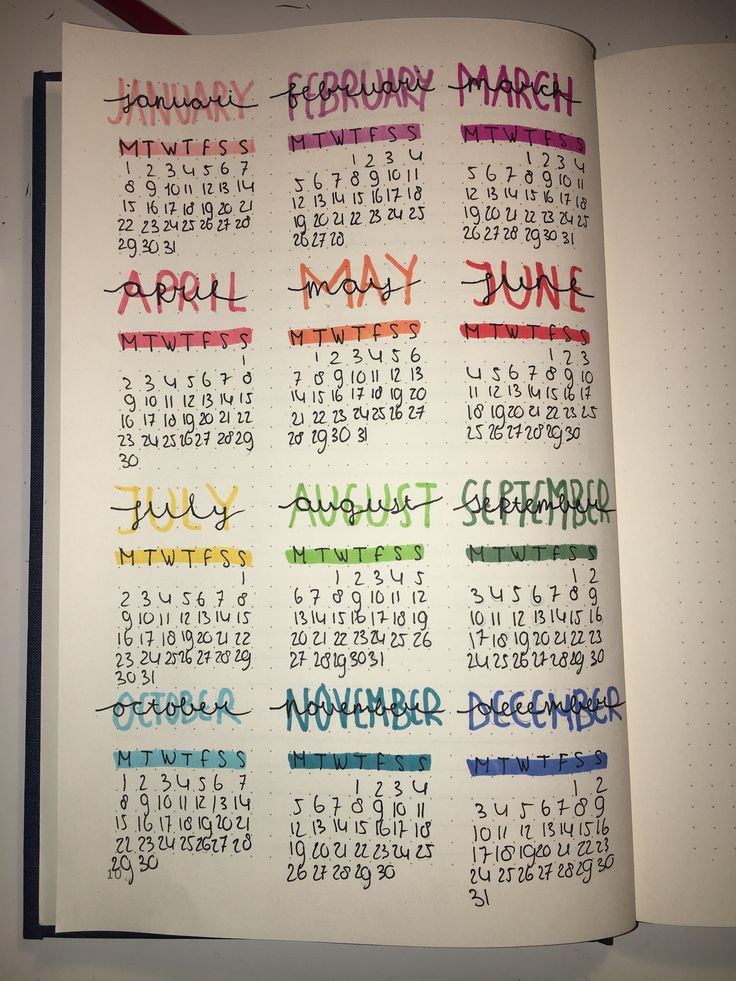 JANUARY
januari
M T W T F S S
1 2 3 4 5 6 7
8 9 10 11 12 13 14
15 16 17 18 19 20 21
22 23 24 25 26 27 28
29 30 31
FEBRUARY
februari
M T W T F S S
1 2 3 4
5 6 7 8 9 10 11
12 13 14 15 16 17 18
19 20 21 22 23 24 25
26 27 28
MARCH
march
M T W T F S S
1 2 3 4
5 6 7 8 9 10 11
12 13 14 15 16 17 18
19 20 21 22 23 24 25
26 27 28 29 30 31
APRIL
april
M T W T F S S
1
2 3 4 5 6 7 8
9 10 11 12 13 14 15
16 17 18 19 20 21 22
23 24 25 26 27 28 29
30
MAY
may
M T W T F S S
1 2 3 4 5 6
7 8 9 10 11 12 13
14 15 16 17 18 19 20
21 22 23 24 25 26 27
28 29 30 31
JUNE
june
M T W T F S S
1 2 3
4 5 6 7 8 9 10
11 12 13 14 15 16 17
18 19 20 21 22 23 24
25 26 27 28 29 30
JULY
july
M T W T F S S
1
2 3 4 5 6 7 8
9 10 11 12 13 14 15
16 17 18 19 20 21 22
23 24 25 26 27 28 29
30 31
AUGUST
august
M T W T F S S
1 2 3 4 5
6 7 8 9 10 11 12
13 14 15 16 17 18 19
20 21 22 23 24 25 26
27 28 29 30 31
SEPTEMBER
september
M T W T F S S
1 2
3 4 5 6 7 8 9
10 11 12 13 14 15 16
17 18 19 20 21 22 23
24 25 26 27 28 29 30
OCTOBER
october
M T W T F S S
1 2 3 4 5 6 7
8 9 10 11 12 13 14
15 16 17 18 19 20 21
22 23 24 25 26 27 28
29 30
NOVEMBER
november
M T W T F S S
1 2 3 4
5 6 7 8 9 10 11
12 13 14 15 16 17 18
19 20 21 22 23 24 25
26 27 28 29 30
DECEMBER
december
M T W T F S S
1 2
3 4 5 6 7 8 9
10 11 12 13 14 15 16
17 18 19 20 21 22 23
24 25 26 27 28 29 30
31